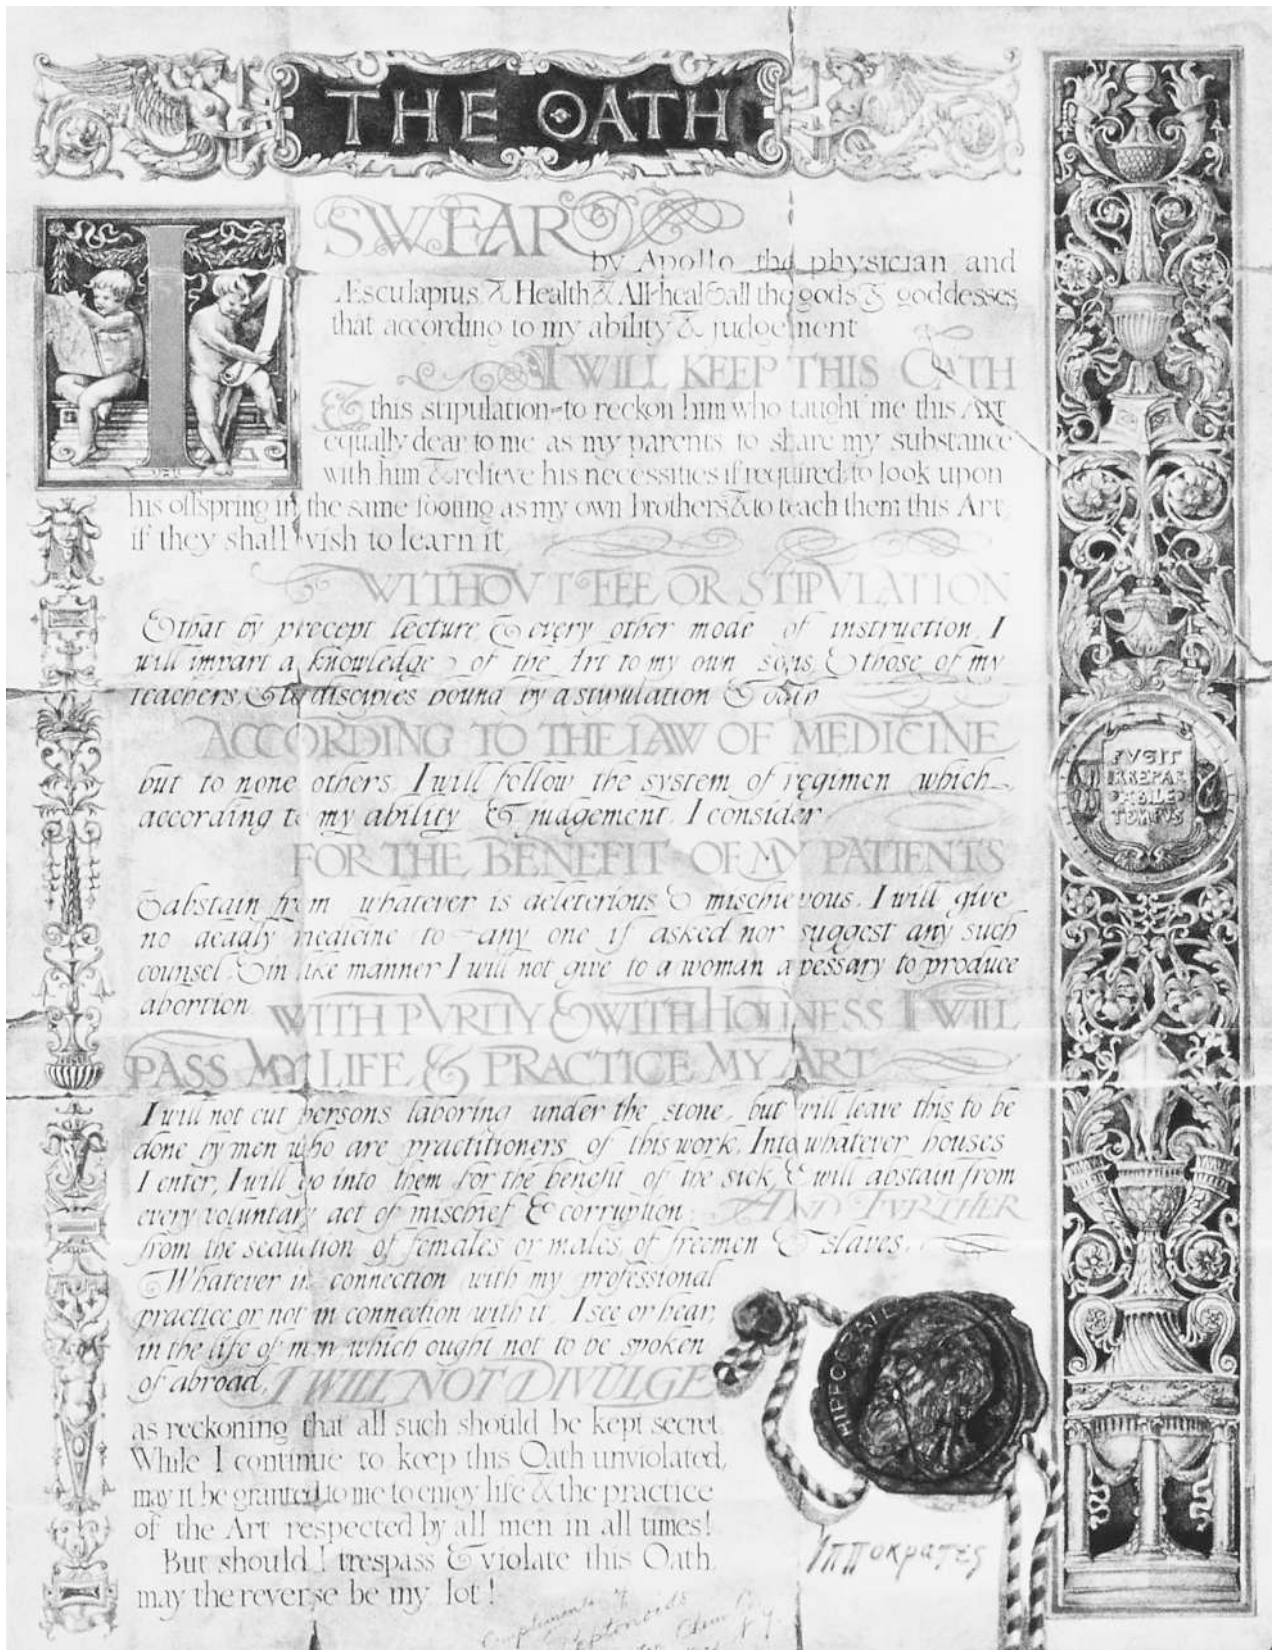 THE OATH
I
SWEAR
by Apollo the physician and
Æsculapius, & Health & All-heal & all the gods & goddesses
that according to my ability & judgement
I WILL KEEP THIS OATH
& this stipulation-to reckon him who taught me this Art
equally dear to me as my parents to share my substance
with him & relieve his necessities if required, to look upon
his offspring in the same footing as my own brothers & to teach them this Art,
if they shall wish to learn it
WITHOVT FEE OR STIPVLATION
& that by precept lecture & every other mode of instruction, I
will impart a knowledge of the Art to my own sons, & those of my
teachers, & to disciples bound by a stipulation & oath
ACCORDING TO THE LAW OF MEDICINE
but to none others. I will follow the system of regimen which,
according to my ability & judgement, I consider
FOR THE BENEFIT OF MY PATIENTS
& abstain from whatever is deleterious & mischievous. I will give
no deadly medicine to any one if asked nor suggest any such
counsel, & in like manner I will not give to a woman a pessary to produce
abortion.
WITH PVRITY & WITH HOLINESS I WILL
PASS MY LIFE & PRACTICE MY ART
I will not cut persons laboring under the stone, but will leave this to be
done by men who are practitioners of this work. Into whatever houses
I enter, I will go into them for the benefit of the sick, & will abstain from
every voluntary act of mischief & corruption;
AND FVRTHER
from the seduction of females or males, of freemen & slaves.
Whatever in connection with my professional
practice or not in connection with it, I see or hear,
in the life of men which ought not to be spoken
of abroad,
I WILL NOT DIVULGE
as reckoning that all such should be kept secret.
While I continue to keep this Oath unviolated,
may it be granted to me to enjoy life & the practice
of the Art respected by all men in all times!
But should I trespass & violate this Oath,
may the reverse be my lot!
FVGIT
IRREPAR
ABILE
TEMPVS
HIPPOCRATE
Ιπποκρατες
Compliments of
Peptonoids
Chem Co.
N.Y.